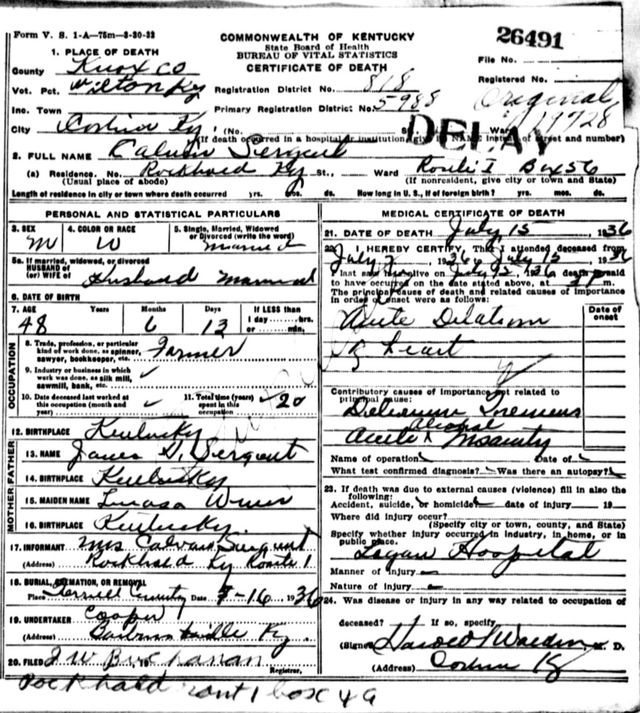 Form V. S. 1-A—75m—3-30-33
COMMONWEALTH OF KENTUCKY
State Board of Health
BUREAU OF VITAL STATISTICS
CERTIFICATE OF DEATH
26491
File No.
Registered No.
Original
19728
DELAY
1. PLACE OF DEATH
County Knox Co
Vot. Pct. Wilton Ky Registration District No. 818
Inc. Town Primary Registration District No. 5988
City Corbin Ky (No. St., Ward)
(If death occurred in a hospital or institution, give its NAME instead of street and number)
2. FULL NAME Calvin Sergent
(a) Residence. No. Rockhold Ky St., Ward Route I Box 56
(Usual place of abode) (If nonresident, give city or town and State)
Length of residence in city or town where death occurred yrs. mos. ds. How long in U. S., if of foreign birth? yrs. mos. ds.
PERSONAL AND STATISTICAL PARTICULARS
3. SEX M
4. COLOR OR RACE W
5. Single, Married, Widowed or Divorced (write the word) Married
5a. If married, widowed, or divorced
HUSBAND of
(or) WIFE of Husband Married
6. DATE OF BIRTH
7. AGE Years Months Days If LESS than
1 day hrs.
or min.
48 6 13
OCCUPATION
8. Trade, profession, or particular kind of work done, as spinner, sawyer, bookkeeper, etc. Farmer
9. Industry or business in which work was done, as silk mill, sawmill, bank, etc. ✓
10. Date deceased last worked at this occupation (month and year) ✓
11. Total time (years) spent in this occupation 20
12. BIRTHPLACE Kentucky
FATHER
13. NAME James Sergent
14. BIRTHPLACE Kentucky
MOTHER
15. MAIDEN NAME
16. BIRTHPLACE Kentucky
17. INFORMANT Mrs Calvin Sergent
(Address) Rockhold Ky Route 1
18. BURIAL, CREMATION, OR REMOVAL
Place County Date 7-16 1936
19. UNDERTAKER Cooper
(Address) Barbourville Ky.
20. FILED 19 J W Buchanan
Registrar.
Rockhold rout 1 box 49
MEDICAL CERTIFICATE OF DEATH
21. DATE OF DEATH July 15 1936
22. I HEREBY CERTIFY, That I attended deceased from
July 7 1936, to July 15 1936
I last saw alive on July 1936 death is said
to have occurred on the date stated above, at m.
The principal cause of death and related causes of importance
in order of onset were as follows:
Date of onset
Acute Dilation
of heart
Contributory causes of importance not related to
principal cause:
Delirium Tremens
Acute Alcohol Insanity
Name of operation Date of
What test confirmed diagnosis? Was there an autopsy?
23. If death was due to external causes (violence) fill in also the following:
Accident, suicide, or homicide date of injury 19
Where did injury occur?
(Specify city or town, county, and State)
Specify whether injury occurred in industry, in home, or in
public place. Logan Hospital
Manner of injury
Nature of injury
24. Was disease or injury in any way related to occupation of
deceased? If so, specify
(Signed) Harold M. D.
(Address) Corbin Ky